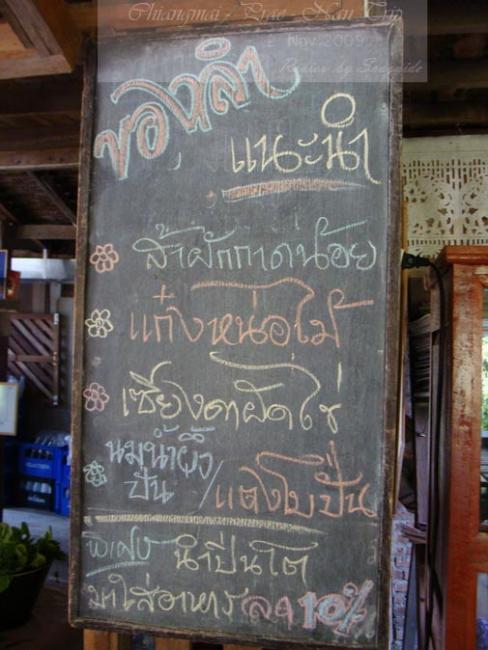 Chiangmai - Prae - Nan Trip
Nov.2009
Review by
ของลำ
แนะนำ
ส้าผักกาดน้อย
แก๋งหน่อไม้
เซียงดาผัดไข่
นมน้ำผึ้ง
ปั่น
/แตงโมปั่น
พิเศษ นำปิ่นโต
มาใส่อาหาร ลด 10%